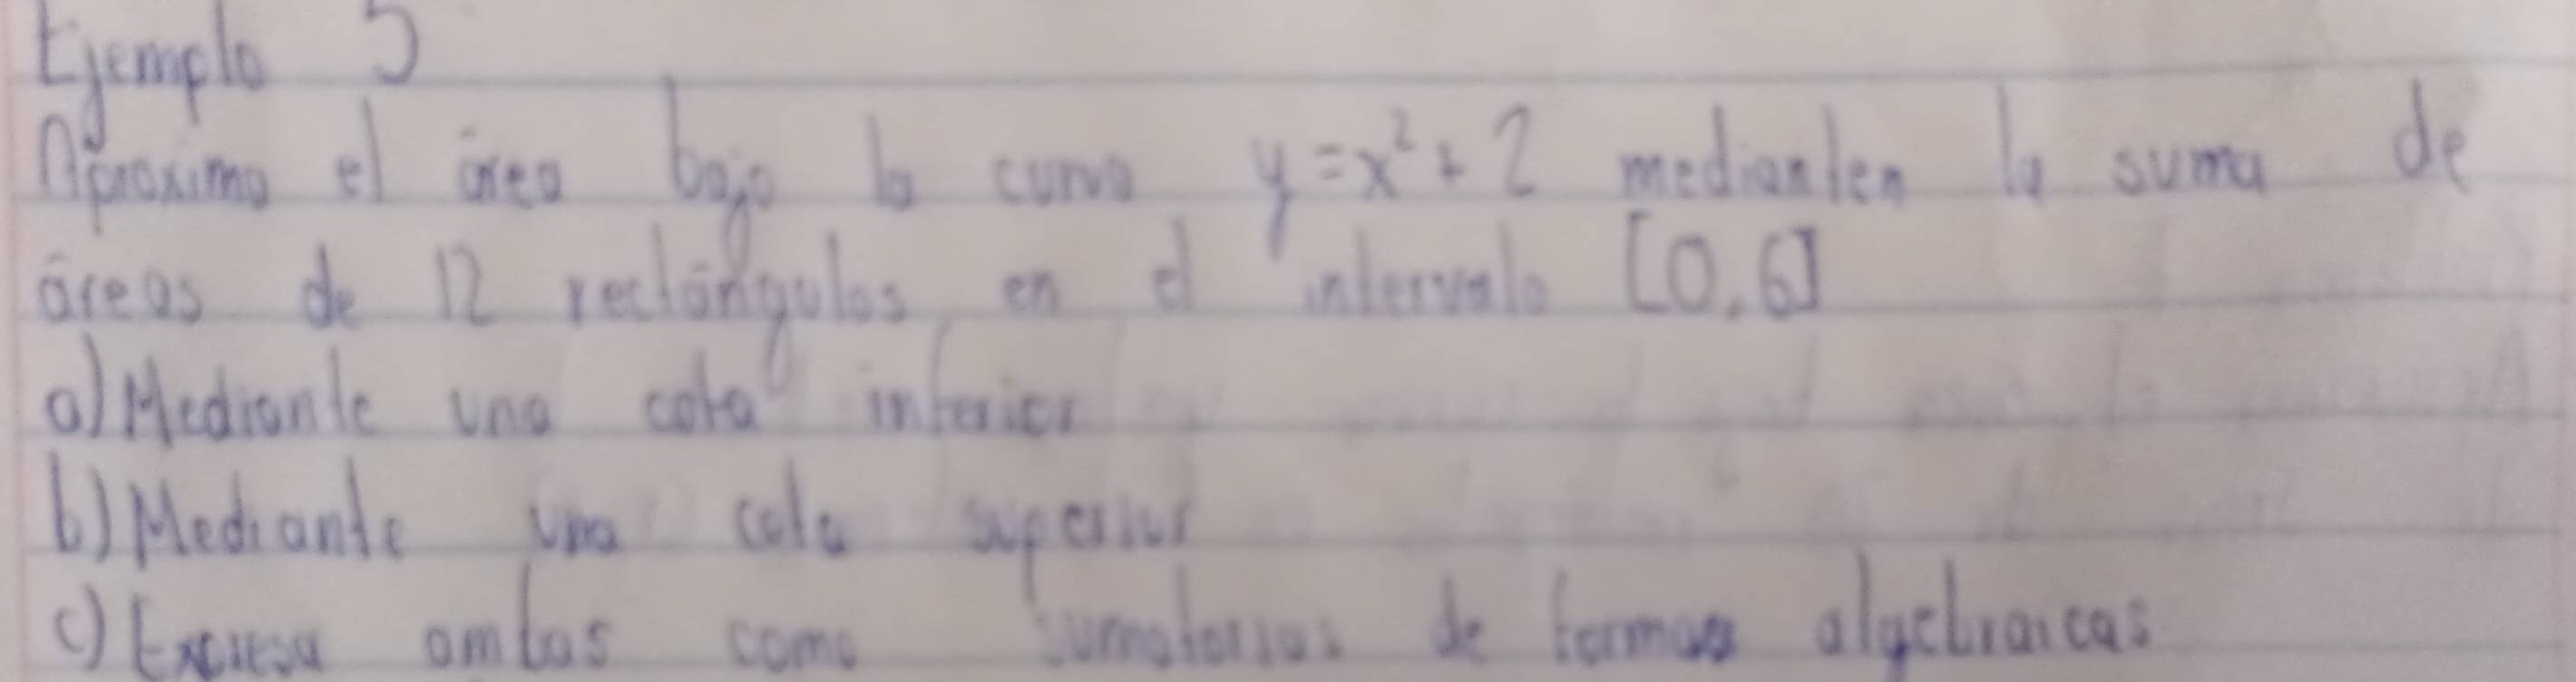 Ejemplo 5
Aproxima el área bajo la curva y = x² + 2 medianten la suma de
áreas de 12 rectángulos en el intervalo [0,6]
a) Mediante una cota inferior
b) Mediante una cota superior
c) Expresa ambas como sumatorias de formas algebraicas